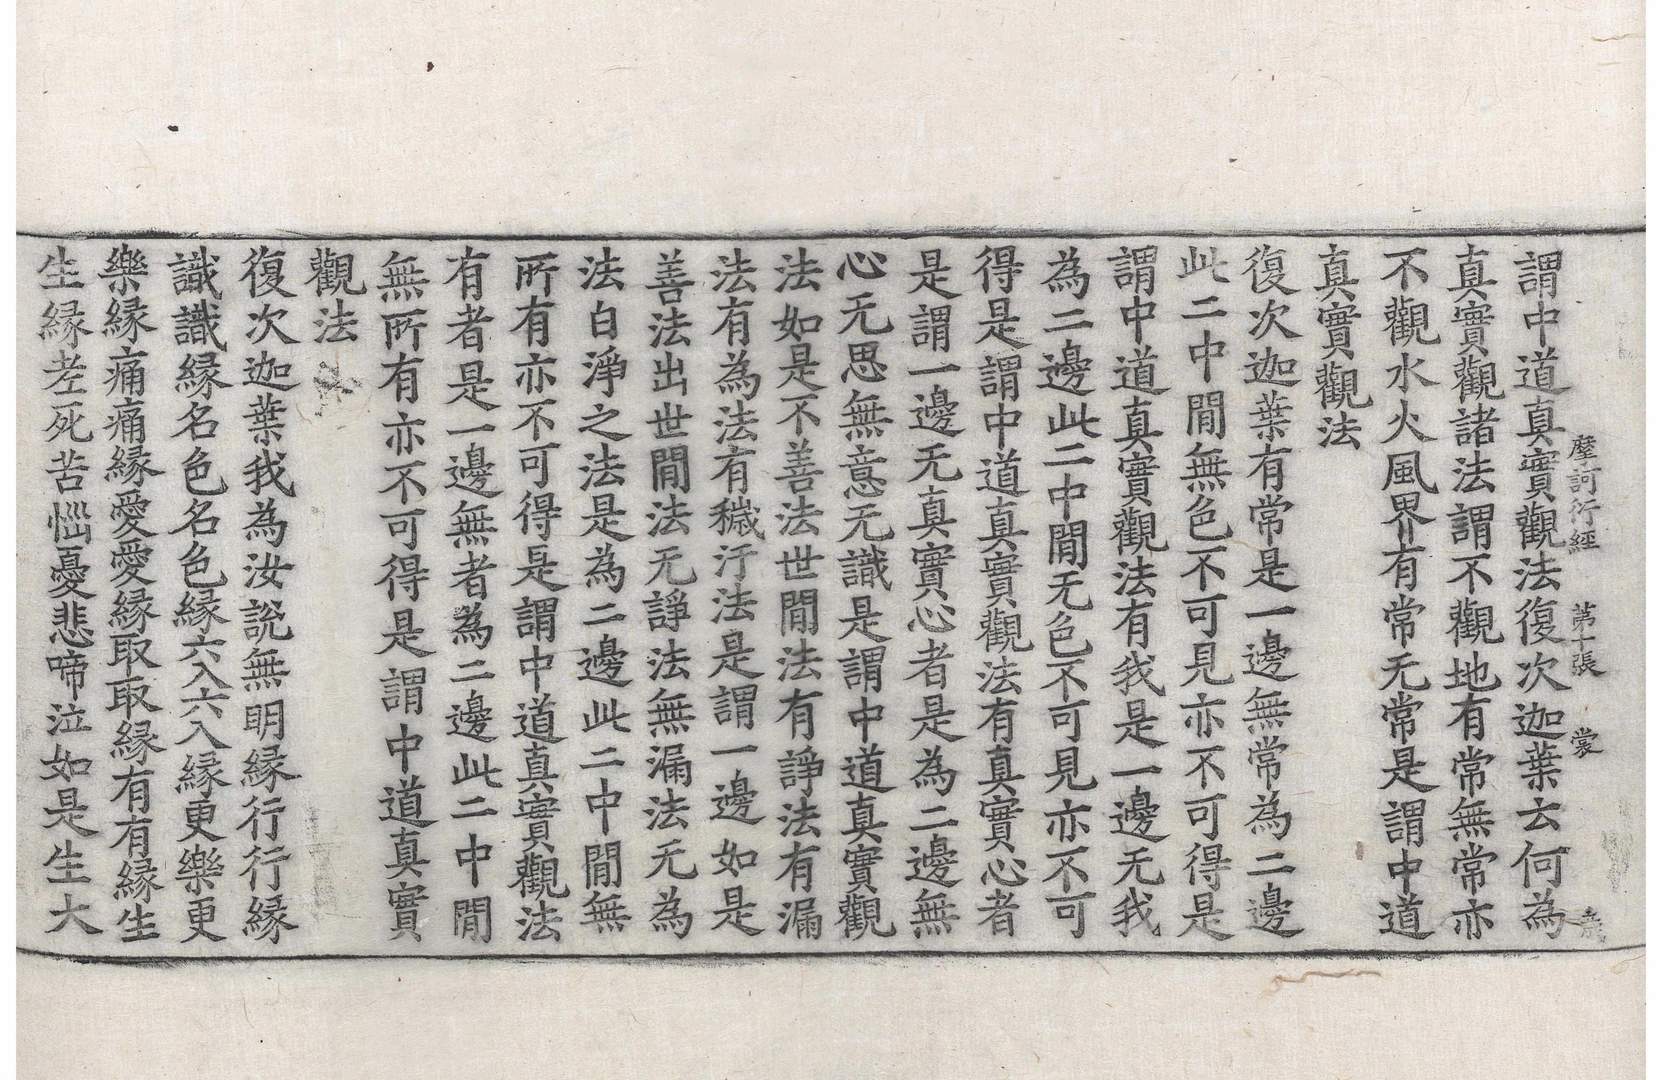 摩訶衍經　第十張　裳
謂中道真實觀法復次迦葉云何為
真實觀諸法謂不觀地有常無常亦
不觀水火風界有常无常是謂中道
真實觀法
復次迦葉有常是一邊無常為二邊
此二中閒無色不可見亦不可得是
謂中道真實觀法有我是一邊无我
為二邊此二中閒无色不可見亦不可
得是謂中道真實觀法有真實心者
是謂一邊无真實心者是為二邊無
心无思無意无識是謂中道真實觀
法如是不善法世閒法有諍法有漏
法有為法有穢汙法是謂一邊如是
善法出世閒法无諍法無漏法无為
法白淨之法是為二邊此二中閒無
所有亦不可得是謂中道真實觀法
有者是一邊無者為二邊此二中閒
無所有亦不可得是謂中道真實
觀法
復次迦葉我為汝說無明緣行行緣
識識緣名色名色緣六入六入緣更樂更
樂緣痛痛緣愛愛緣取取緣有有緣生
生緣老死苦惱憂悲啼泣如是生大